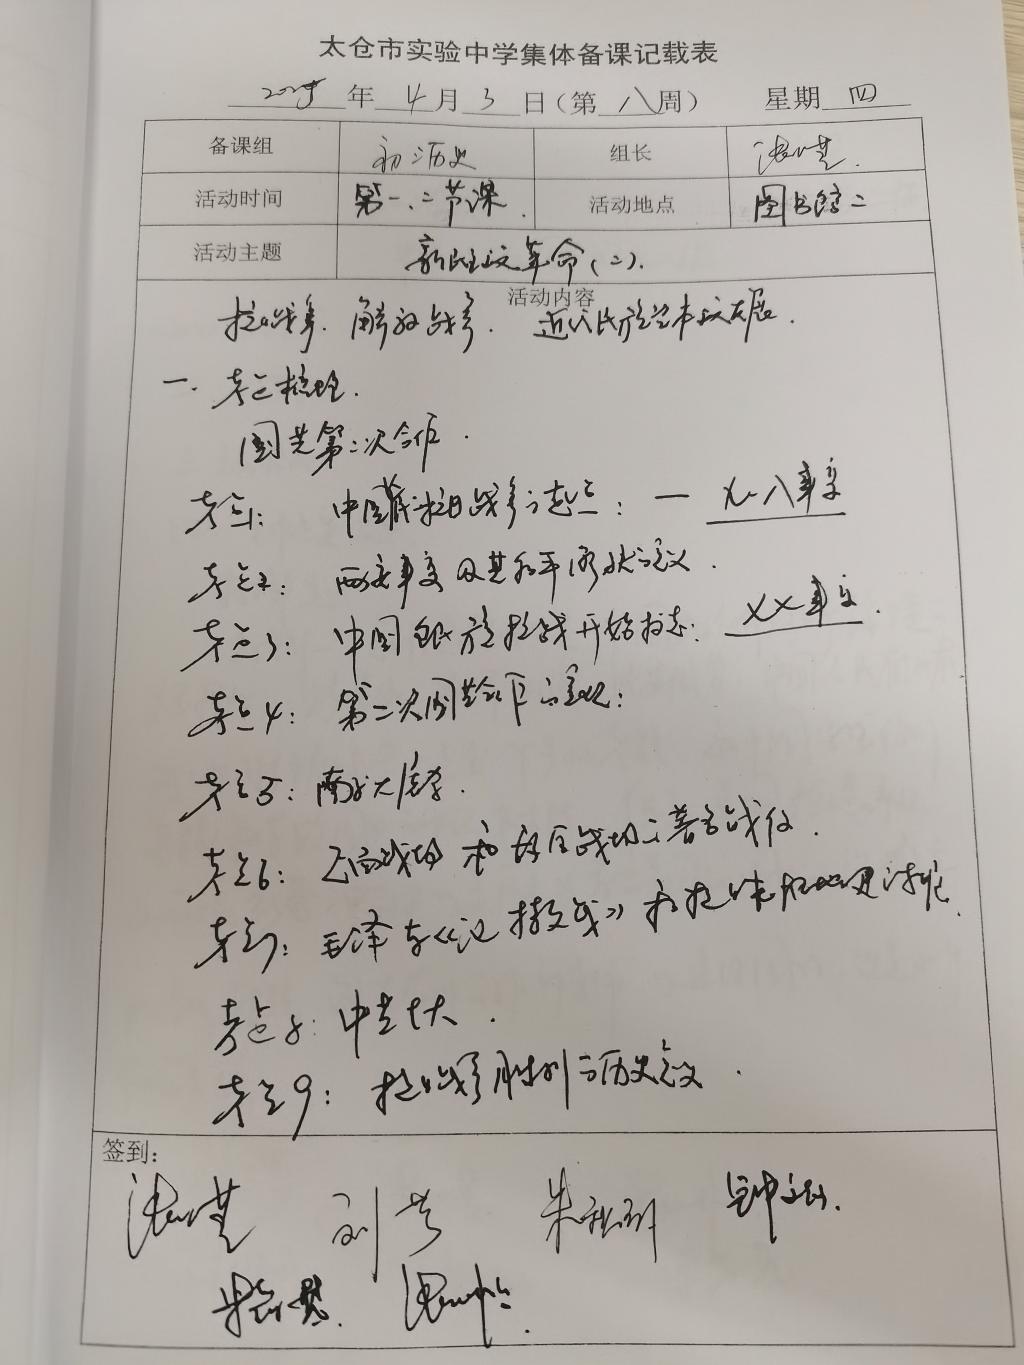 太仓市实验中学集体备课记载表
2025年 4月 3日(第 八周) 星期 四
备课组 初二历史 组长
活动时间 第一、二节课. 活动地点 图书馆二
活动主题 新民主主义革命(二).
活动内容
抗日战争. 解放战争. 近代民族资本主义发展.
一. 考点梳理.
国共第二次合作.
考点1: 中国抗日战争的起点: 一 九·一八事变
考点2: 西安事变及其和平解决的意义.
考点3: 中国全民族抗战开始标志: 七七事变.
考点4: 第二次国共合作的实现:
考点5: 南京大屠杀.
考点6: 正面战场和敌后战场的著名战役.
考点7: 毛泽东《论持久战》和抗日根据地建设.
考点8: 中共七大.
考点9: 抗日战争胜利的历史意义.
签到:
刘芳